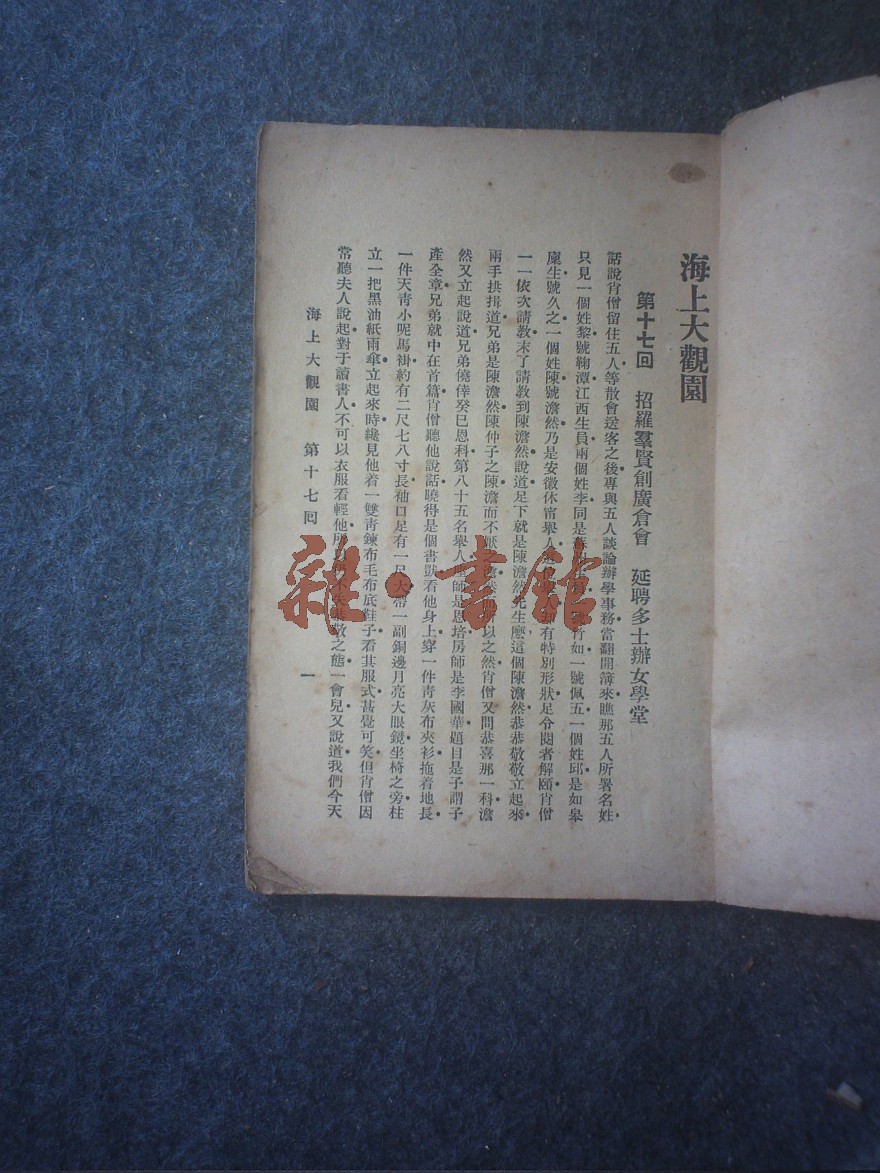 海上大觀園
第十七回　招羅羣賢創廣倉會　延聘多士辦女學堂
話說肖僧留住五人等散會送客之後專與五人談論辦學事務當翻開簿來瞧那五人所署名姓
只見一個姓黎號鞠潭江西生員兩個姓李同是 竹如一號佩五一個姓邱是如皋
廩生號久之一個姓陳號澹然乃是安徽休甯舉人 有特別形狀足令閱者解頤肖僧
一一依次請教末了請教到陳澹然說道足下就是陳澹然先生麼這個陳澹然恭恭敬敬立起來
兩手拱揖道兄弟是陳澹然陳仲子之陳澹而不厭 所以之然肖僧又問恭喜那一科澹
然又立起說道兄弟僥倖癸巳恩科第八十五名舉人 師是恩培房師是李國華題目是子謂子
產全章兄弟就中在首篇肖僧聽他說話曉得是個書獃看他身上穿一件青灰布夾衫拖着地長
一件天青小呢馬褂約有二尺七八寸長袖口足有一尺大帶一副銅邊月亮大眼鏡坐椅之旁柱
立一把黑油紙雨傘立起來時纔見他着一雙青鍊布毛布底鞋子看其服式甚覺可笑但肖僧因
常聽夫人說起對于讀書人不可以衣服看輕他所以 敬之態一會兒又說道我們今天
海上大觀園　第十七回　一
雜·書館